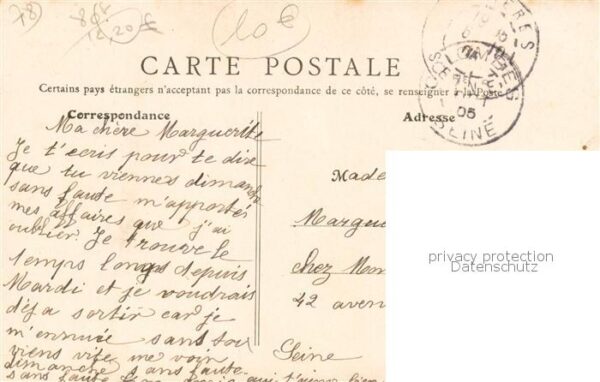 78
10€
CARTE POSTALE
Certains pays étrangers n'acceptant pas la correspondance de ce côté, se renseigner à la Poste
Correspondance
Ma chère Marguerite
Je t'ecris pour te dire
que tu viennes dimanche
sans faute m'apporter
mes affaires que j'ai
oublier. Je trouve le
temps longs depuis
Mardi et je voudrais
déja sortir car je
m'ennuie sans toi
viens vite me voir
dimanche sans faute.
sans faute
qui t'aime bien
Adresse
COLOMBES
05
SEINE
Made
Margue
chez Mon
42 aven
Seine
privacy protection
Datenschutz